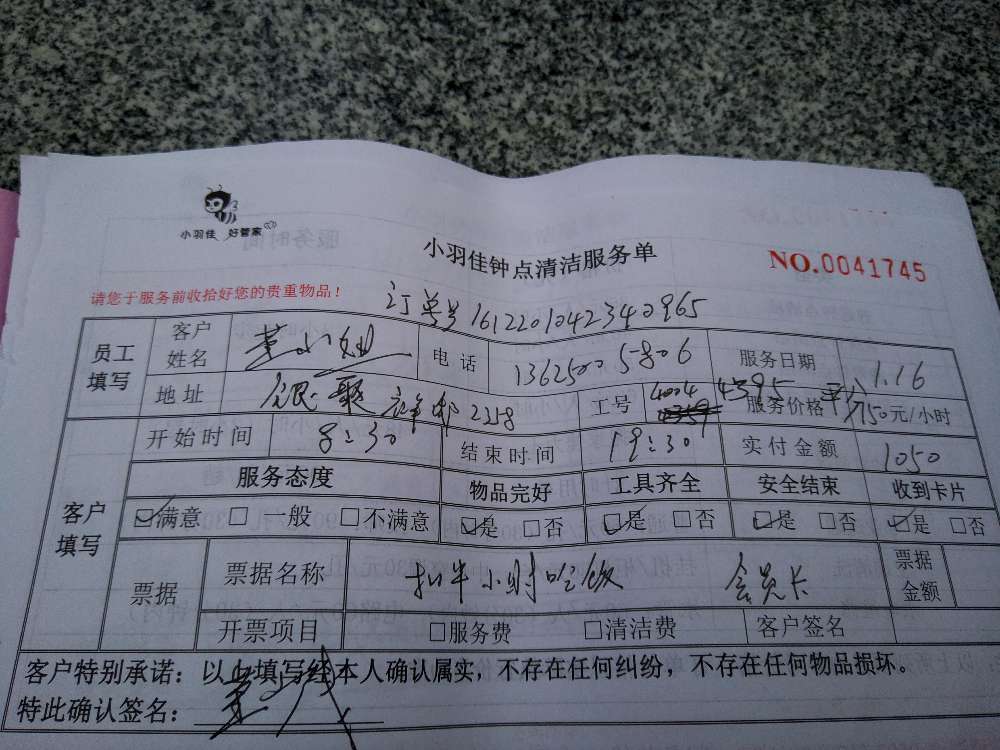 小羽佳 好管家
小羽佳钟点清洁服务单
NO.0041745
请您于服务前收拾好您的贵重物品!
订单号 1612201042340965
员工填写 客户姓名 董小姐 电话 13625005806 服务日期 1.16
地址 2258 工号 4004 4395 服务价格 750元/小时
开始时间 8:30 结束时间 19:30 实付金额 1050
客户填写 服务态度 物品完好 工具齐全 安全结束 收到卡片
☑满意 □一般 □不满意 ☑是 □否 ☑是 □否 ☑是 □否 ☑是 □否
票据 票据名称 扣半小时吃饭 会员卡 票据金额
开票项目 □服务费 □清洁费 客户签名
客户特别承诺:以上填写经本人确认属实,不存在任何纠纷,不存在任何物品损坏。
特此确认签名: